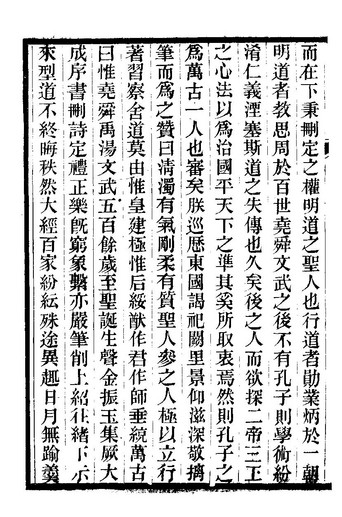 而在下秉刪定之權明道之聖人也行道者勛業炳於一朝
明道者教思周於百世堯舜文武之後不有孔子則學術紛
淆仁義湮塞斯道之失傳也久矣後之人而欲探二帝三王
之心法以為治國平天下之準其奚所取衷焉然則孔子之
為萬古一人也審矣朕巡歷東國謁祀闕里景仰滋深敬摛
筆而為之贊曰清濁有氣剛柔有質聖人參之人極以立行
著習察舍道莫由惟皇建極惟后綏猷作君作師垂統萬古
曰惟堯舜禹湯文武五百餘歲至聖誕生聲金振玉集厥大
成序書刪詩定禮正樂旣窮象繫亦嚴筆削上紹往緒下示
來型道不終晦秩然大經百家紛紜殊途異趣日月無踰羹